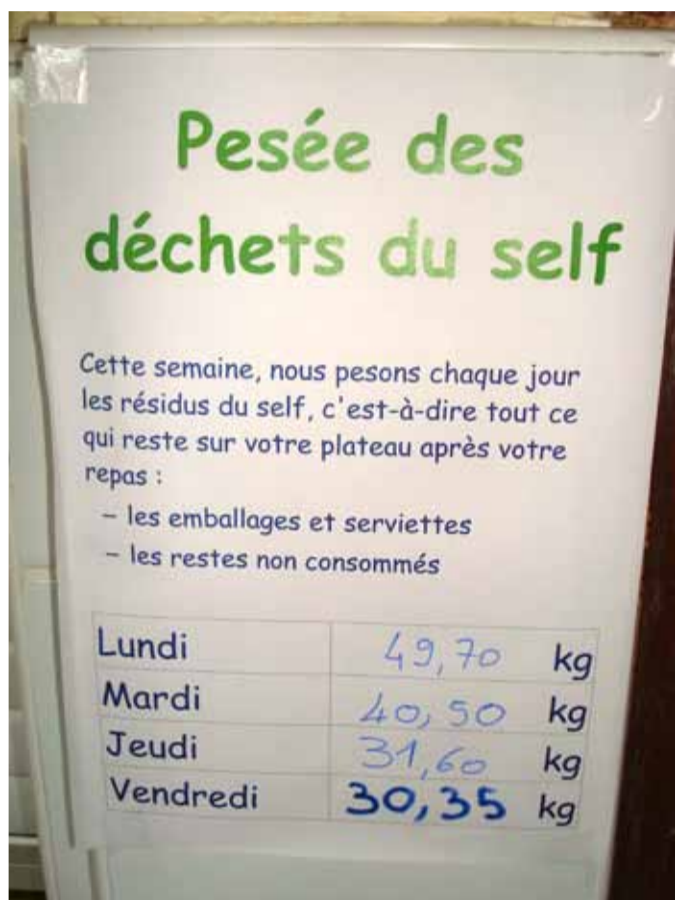 Pesée des
déchets du self
Cette semaine, nous pesons chaque jour
les résidus du self, c'est-à-dire tout ce
qui reste sur votre plateau après votre
repas :
– les emballages et serviettes
– les restes non consommés
Lundi 49,70 kg
Mardi 40,50 kg
Jeudi 31,60 kg
Vendredi 30,35 kg